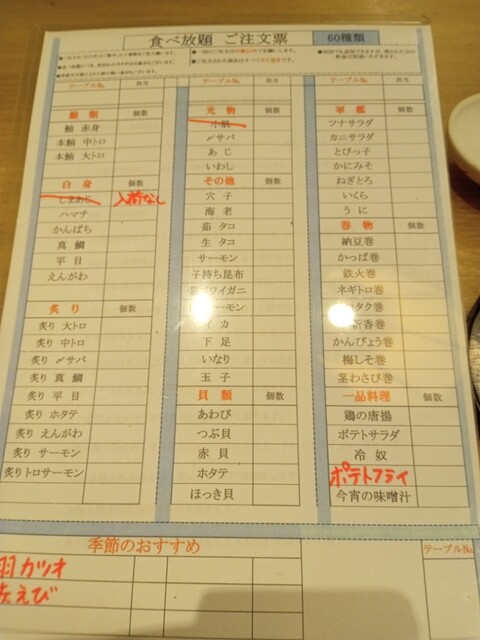 食べ放題 ご注文票
60種類
テーブルNo.
担当
鮪類
個数
鮪 赤身
本鮪 中トロ
本鮪 大トロ
白身
個数
しまあじ
入荷なし
ハマチ
かんぱち
真鯛
平目
えんがわ
炙り
個数
炙り 大トロ
炙り 中トロ
炙り 〆サバ
炙り 真鯛
炙り 平目
炙り ホタテ
炙り えんがわ
炙り サーモン
炙りトロサーモン
テーブルNo.
担当
光物
個数
小肌
〆サバ
あじ
いわし
その他
個数
穴子
海老
茹タコ
生タコ
サーモン
子持ち昆布
ズワイガニ
サーモン
イカ
下足
いなり
玉子
貝類
個数
あわび
つぶ貝
赤貝
ホタテ
ほっき貝
テーブルNo.
担当
軍艦
個数
ツナサラダ
カニサラダ
とびっ子
かにみそ
ねぎとろ
いくら
うに
巻物
個数
納豆巻
かっぱ巻
鉄火巻
ネギトロ巻
タク巻
新香巻
かんぴょう巻
梅しそ巻
茎わさび巻
一品料理
個数
鶏の唐揚
ポテトサラダ
冷奴
ポテトフライ
今宵の味噌汁
季節のおすすめ
テーブルNo.
羽カツオ
えび